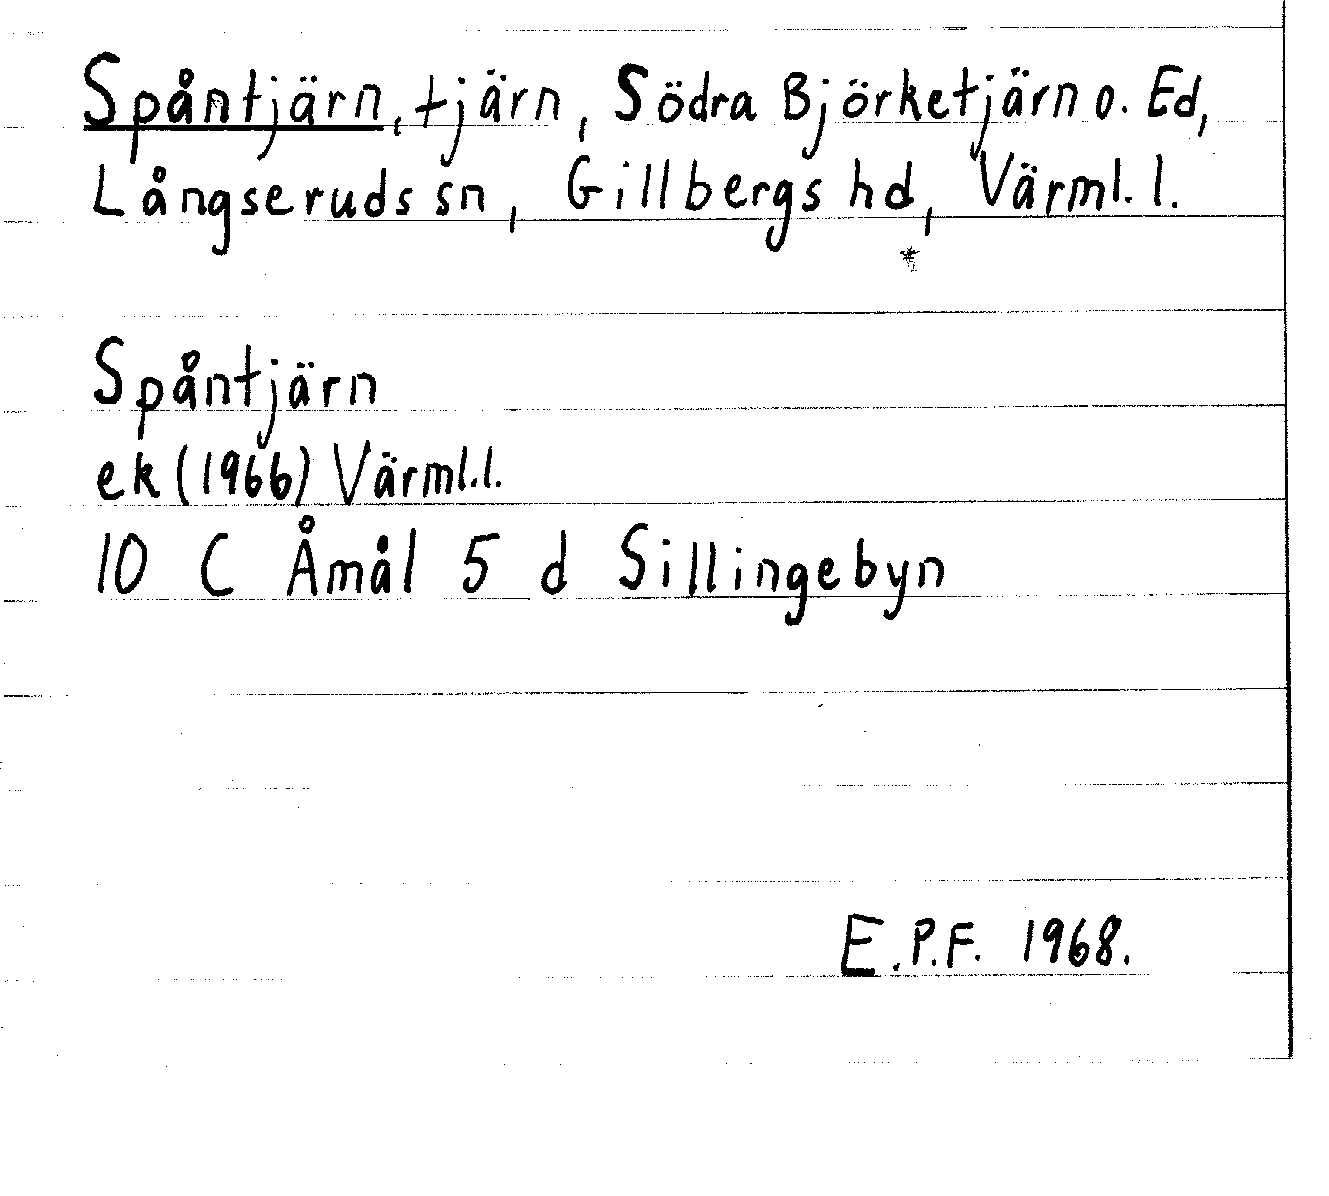 Spåntjärn, tjärn, Södra Björketjärn o. Ed,
Långseruds sn, Gillbergs hd, Värml. l.
Spåntjärn
ek (1966) Värml.l.
10 C Åmål 5 d Sillingebyn
E.P.F. 1968.